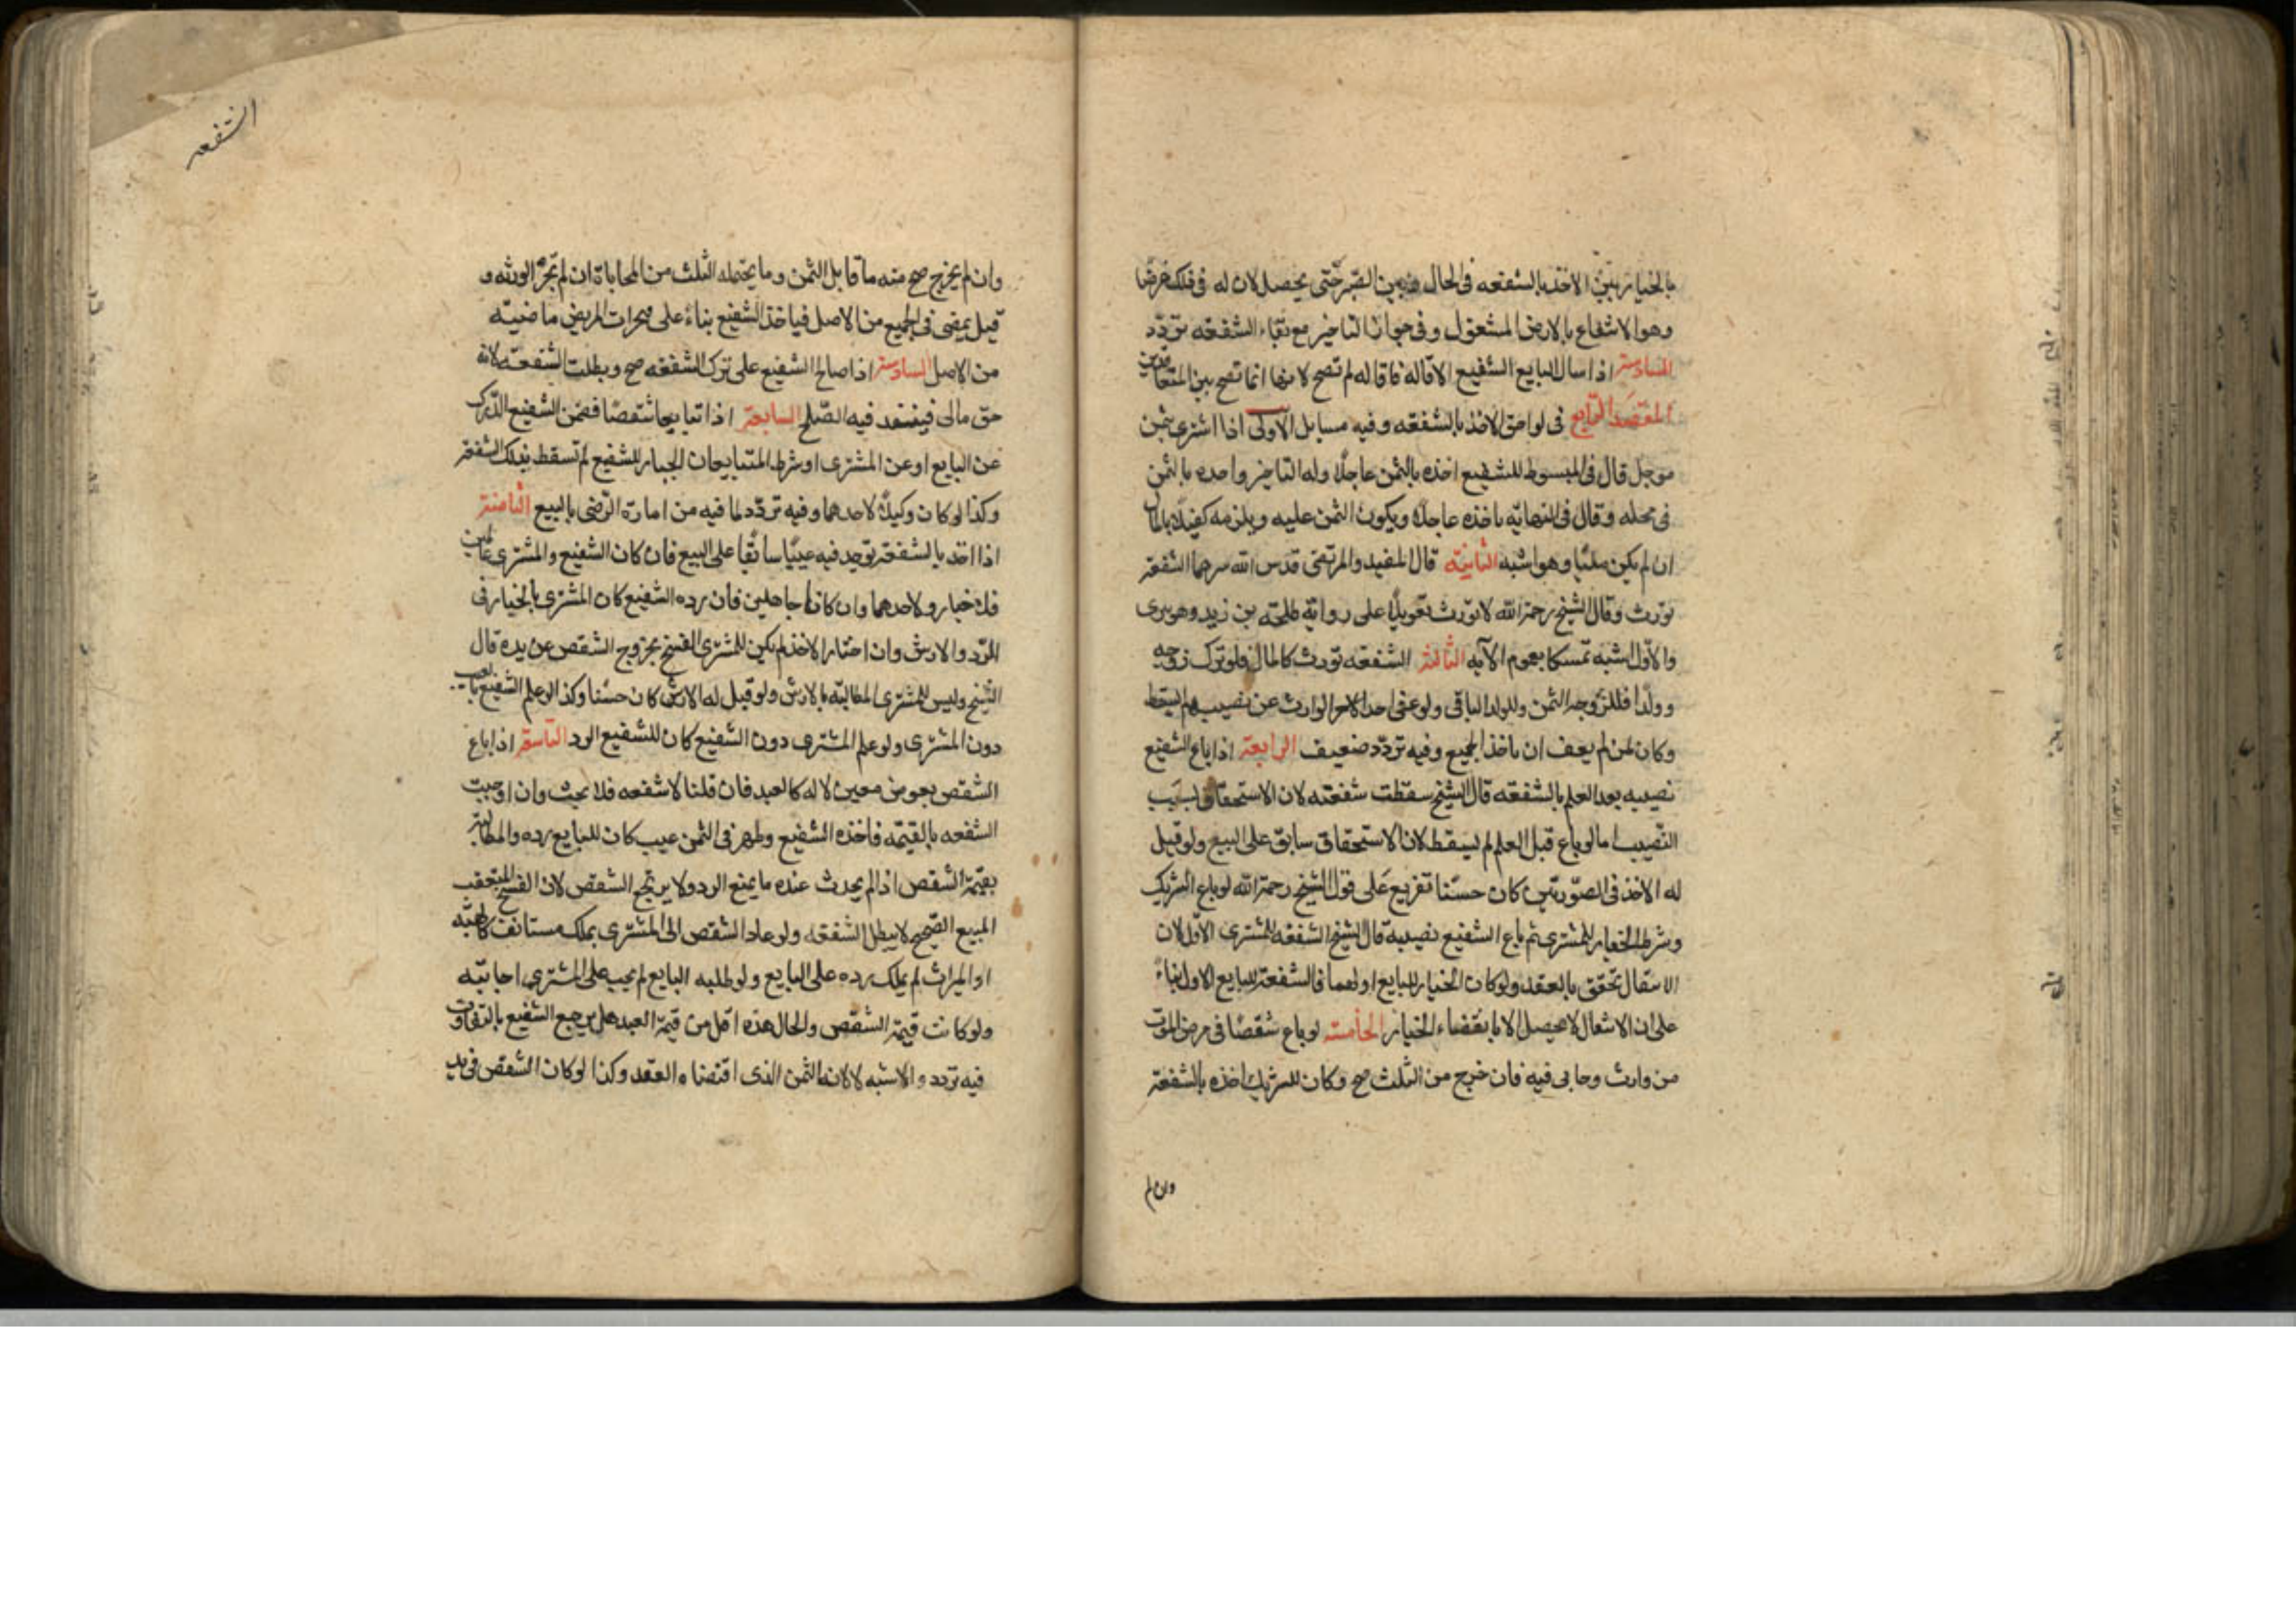 بالخيار بين الاخذ بالشفعه فى الحال وبين الصبر حتى يحصل لان له فى ذلك غرضا
وهو الاشفاع بالارض المشغول وفى جواز التاخير مع بقاء الشفعه تردّد
السادسة اذا سال البايع الشفيع الاقاله فاقاله لم تصح لانها انما تصح بين المتعاقدين
المقصد الرّابع فى لواحق الاخذ بالشفعه وفيه مسايل الاولى اذا اشترى بثمن
موجل قال فى المبسوط للشفيع اخذه بالثمن عاجلا وله التاخير واخده بالثمن
فى محله وقال فى النهايّه ياخذه عاجلا ويكون الثمن عليه ويلزمه كفيلا بالمال
ان لم يكن مليّا وهو اشبه الثانيّه قال المفيد والمرتضى قدس الله سرهما الشفعة
تورث وقال الشيخ رحمة الله لا تورث تعويلا على رواية طلحة بن زيد وهو بترى
والاوّل اشبه تمسكا بعموم الآيه الثّالثة الشفعه تورث كالمال فلو ترك زوجه
وولدا فللزّوجه الثمن وللولد الباقى ولو عفى احد الوارث عن نصيبه لم يسقط
وكان لمن لم يعف ان ياخذ الجميع وفيه تردّد ضعيف الرابعة اذا باع الشفيع
نصيبه بعد العلم بالشفعه قال الشيخ سقطت شفعته لان الاستحقاق بسبب
النّصيب اما لو باع قبل العلم لم يسقط لان الاستحقاق سابق على البيع ولو قيل
له الاخذ فى الصّورتين كان حسنا تفريع على قول الشيخ رحمة الله لو باع الشريك
وشرط الخيار للمشترى ثم باع الشفيع نصيبه قال الشيخ الشفعه للمشترى الاوّل لان
الانتقال تحقق بالعقد ولو كان الخيار للبايع او لهما فالشفعة للبايع الاول بناء
على ان الانتقال لا يحصل الا بانقضاء الخيار الخامسة لو باع شقصا فى مرض الموت
من وارث وحابى فيه فان خرج من الثلث صح وكان للشريك اخذه بالشفعة
وان لم
الشفعه
وان لم يخرج صح منه ما قابل الثمن وما يحتمله الثلث من المحاباة ان لم تجز الورثه و
قيل يمضى فى الجميع من الاصل فياخذ الشفيع بناء على منجزات المريض ماضيّه
من الاصل السادسة اذا صالح الشفيع على ترك الشفعه صح وبطلت الشفعه لانه
حق مالى فينفذ فيه الصّلح السابعة اذا تبايعا شقصا فضمن الشفيع الدّرك
عن البايع او عن المشترى او شرط المتبايعان الخيار للشفيع لم تسقط بذلك الشفعة
وكذا لو كان وكيلا لاحدهما وفيه تردّد لما فيه من امارة الرّضى بالبيع الثامنة
اذا اخذ بالشفعة فوجد فيه عيبا سابقا على البيع فان كان الشفيع والمشترى عالمين
فلا خيار ولاحدهما وان كانا جاهلين فان رده الشفيع كان المشترى بالخيار فى
الرّد والارش وان اختار الاخذ لم يكن للمشترى الفسخ بخروج الشقص عن يده قال
الشيخ وليس للمشترى المطالبّه بالارش ولو قيل له الارش كان حسنا وكذا لو علم الشفيع بالعيب
دون المشترى ولو علم المشترى دون الشفيع كان للشفيع الرد التاسعة اذا باع
الشقص بعوض معين لا له كالعبد فان قلنا لا شفعه فلا بحث وان اوجبت
الشفعه بالقيمّه فاخذه الشفيع وظهر فى الثمن عيب كان للبايع رده والمطالبة
بقيمة الشقص اذا لم يحدث عنده ما يمنع الرد ولا يرتجع الشقص لان الفسخ المتعقب
المبيع الصّحيح لا يبطل الشفعه ولو عاد الشقص الى المشترى بملك مستانف كالهبّه
او الميراث لم يملك رده على البايع ولو طلبه البايع لم يجب على المشترى اجابتّه
ولو كانت قيمة الشقص والحال هذه اقل من قيمة العبد هل يرجع الشفيع بالتفاوت
فيه تردد والاشبه لا لانه الثمن الذى اقتضاه العقد وكذا لو كان الشقص فى يد